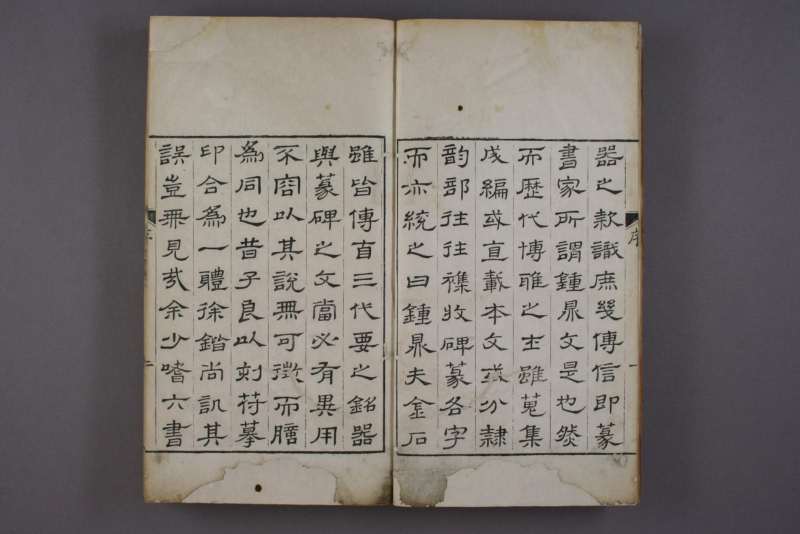 器之款識庶幾傳信即篆
書家所謂鍾鼎文是也然
而歷代博雅之士雖蒐集
成編或直載本文或分隸
韵部往往襍收碑篆各字
而亦統之曰鍾鼎夫金石
雖皆傳自三代要之銘器
與篆碑之文當必有異用
不容以其說無可徵而臆
為同也昔子良以刻符摹
印合為一體徐鍇尚訊其
誤豈無見哉余少嗜六書
序
一
序
二